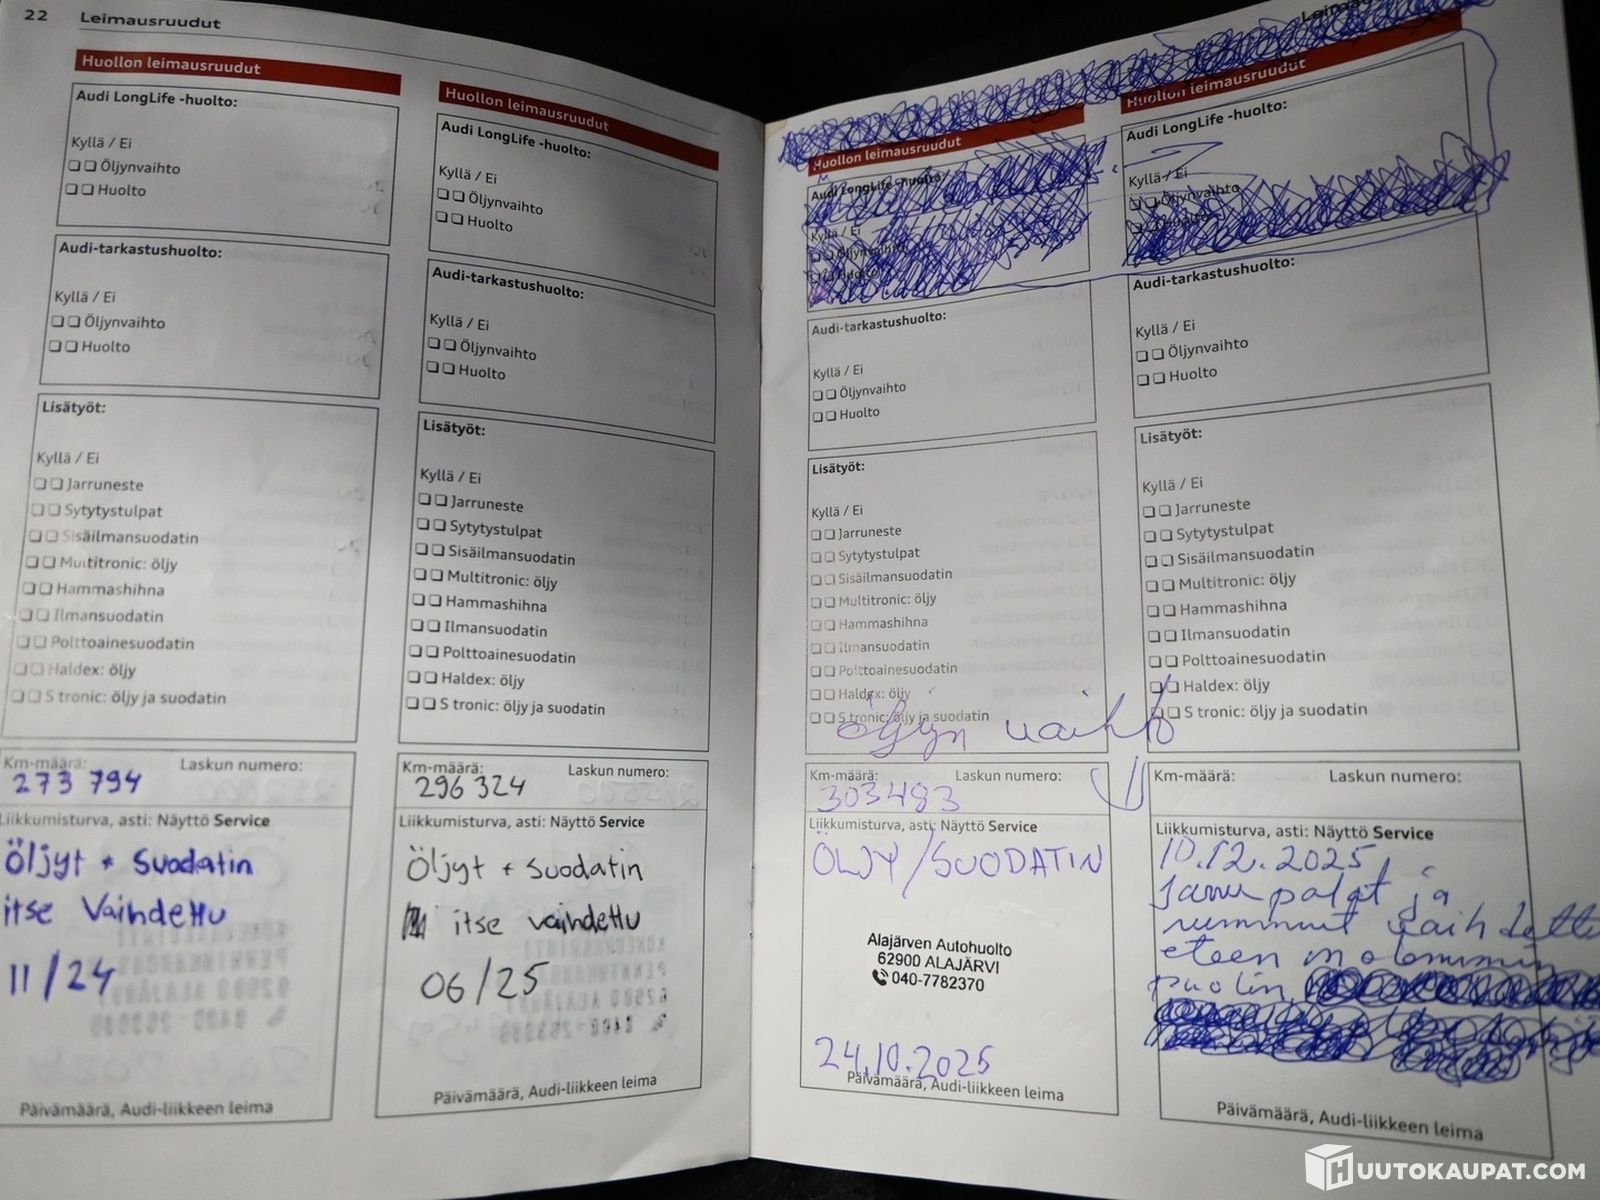 22 Leimausruudut
Huollon leimausruudut
Audi LongLife -huolto:
Kyllä / Ei
Öljynvaihto
Huolto
Audi-tarkastushuolto:
Kyllä / Ei
Öljynvaihto
Huolto
Lisätyöt:
Kyllä / Ei
Jarruneste
Sytytystulpat
Sisäilmansuodatin
Multitronic: öljy
Hammashihna
Ilmansuodatin
Polttoainesuodatin
Haldex: öljy
S tronic: öljy ja suodatin
Km-määrä: Laskun numero:
273 794
Liikkumisturva, asti: Näyttö Service
Öljyt + Suodatin
itse vaihdettu
11/24
Päivämäärä, Audi-liikkeen leima
Huollon leimausruudut
Audi LongLife -huolto:
Kyllä / Ei
Öljynvaihto
Huolto
Audi-tarkastushuolto:
Kyllä / Ei
Öljynvaihto
Huolto
Lisätyöt:
Kyllä / Ei
Jarruneste
Sytytystulpat
Sisäilmansuodatin
Multitronic: öljy
Hammashihna
Ilmansuodatin
Polttoainesuodatin
Haldex: öljy
S tronic: öljy ja suodatin
Km-määrä: Laskun numero:
296 324
Liikkumisturva, asti: Näyttö Service
Öljyt + Suodatin
itse vaihdettu
06/25
Päivämäärä, Audi-liikkeen leima
Huollon leimausruudut
Audi LongLife -huolto:
Kyllä / Ei
Öljynvaihto
Huolto
Audi-tarkastushuolto:
Kyllä / Ei
Öljynvaihto
Huolto
Lisätyöt:
Kyllä / Ei
Jarruneste
Sytytystulpat
Sisäilmansuodatin
Multitronic: öljy
Hammashihna
Ilmansuodatin
Polttoainesuodatin
Haldex: öljy
S tronic: öljy ja suodatin
öljyn vaihto
Km-määrä: Laskun numero:
303483
Liikkumisturva, asti: Näyttö Service
ÖLJY/SUODATIN
Alajärven Autohuolto
62900 ALAJÄRVI
040-7782370
24.10.2025
Päivämäärä, Audi-liikkeen leima
Huollon leimausruudut
Audi LongLife -huolto:
Kyllä / Ei
Öljynvaihto
Huolto
Audi-tarkastushuolto:
Kyllä / Ei
Öljynvaihto
Huolto
Lisätyöt:
Kyllä / Ei
Jarruneste
Sytytystulpat
Sisäilmansuodatin
Multitronic: öljy
Hammashihna
Ilmansuodatin
Polttoainesuodatin
Haldex: öljy
S tronic: öljy ja suodatin
Km-määrä: Laskun numero:
Liikkumisturva, asti: Näyttö Service
10.12.2025
palat ja
rummut vaihdettu
eteen molemmin
puolin
Päivämäärä, Audi-liikkeen leima
HUUTOKAUPAT.COM